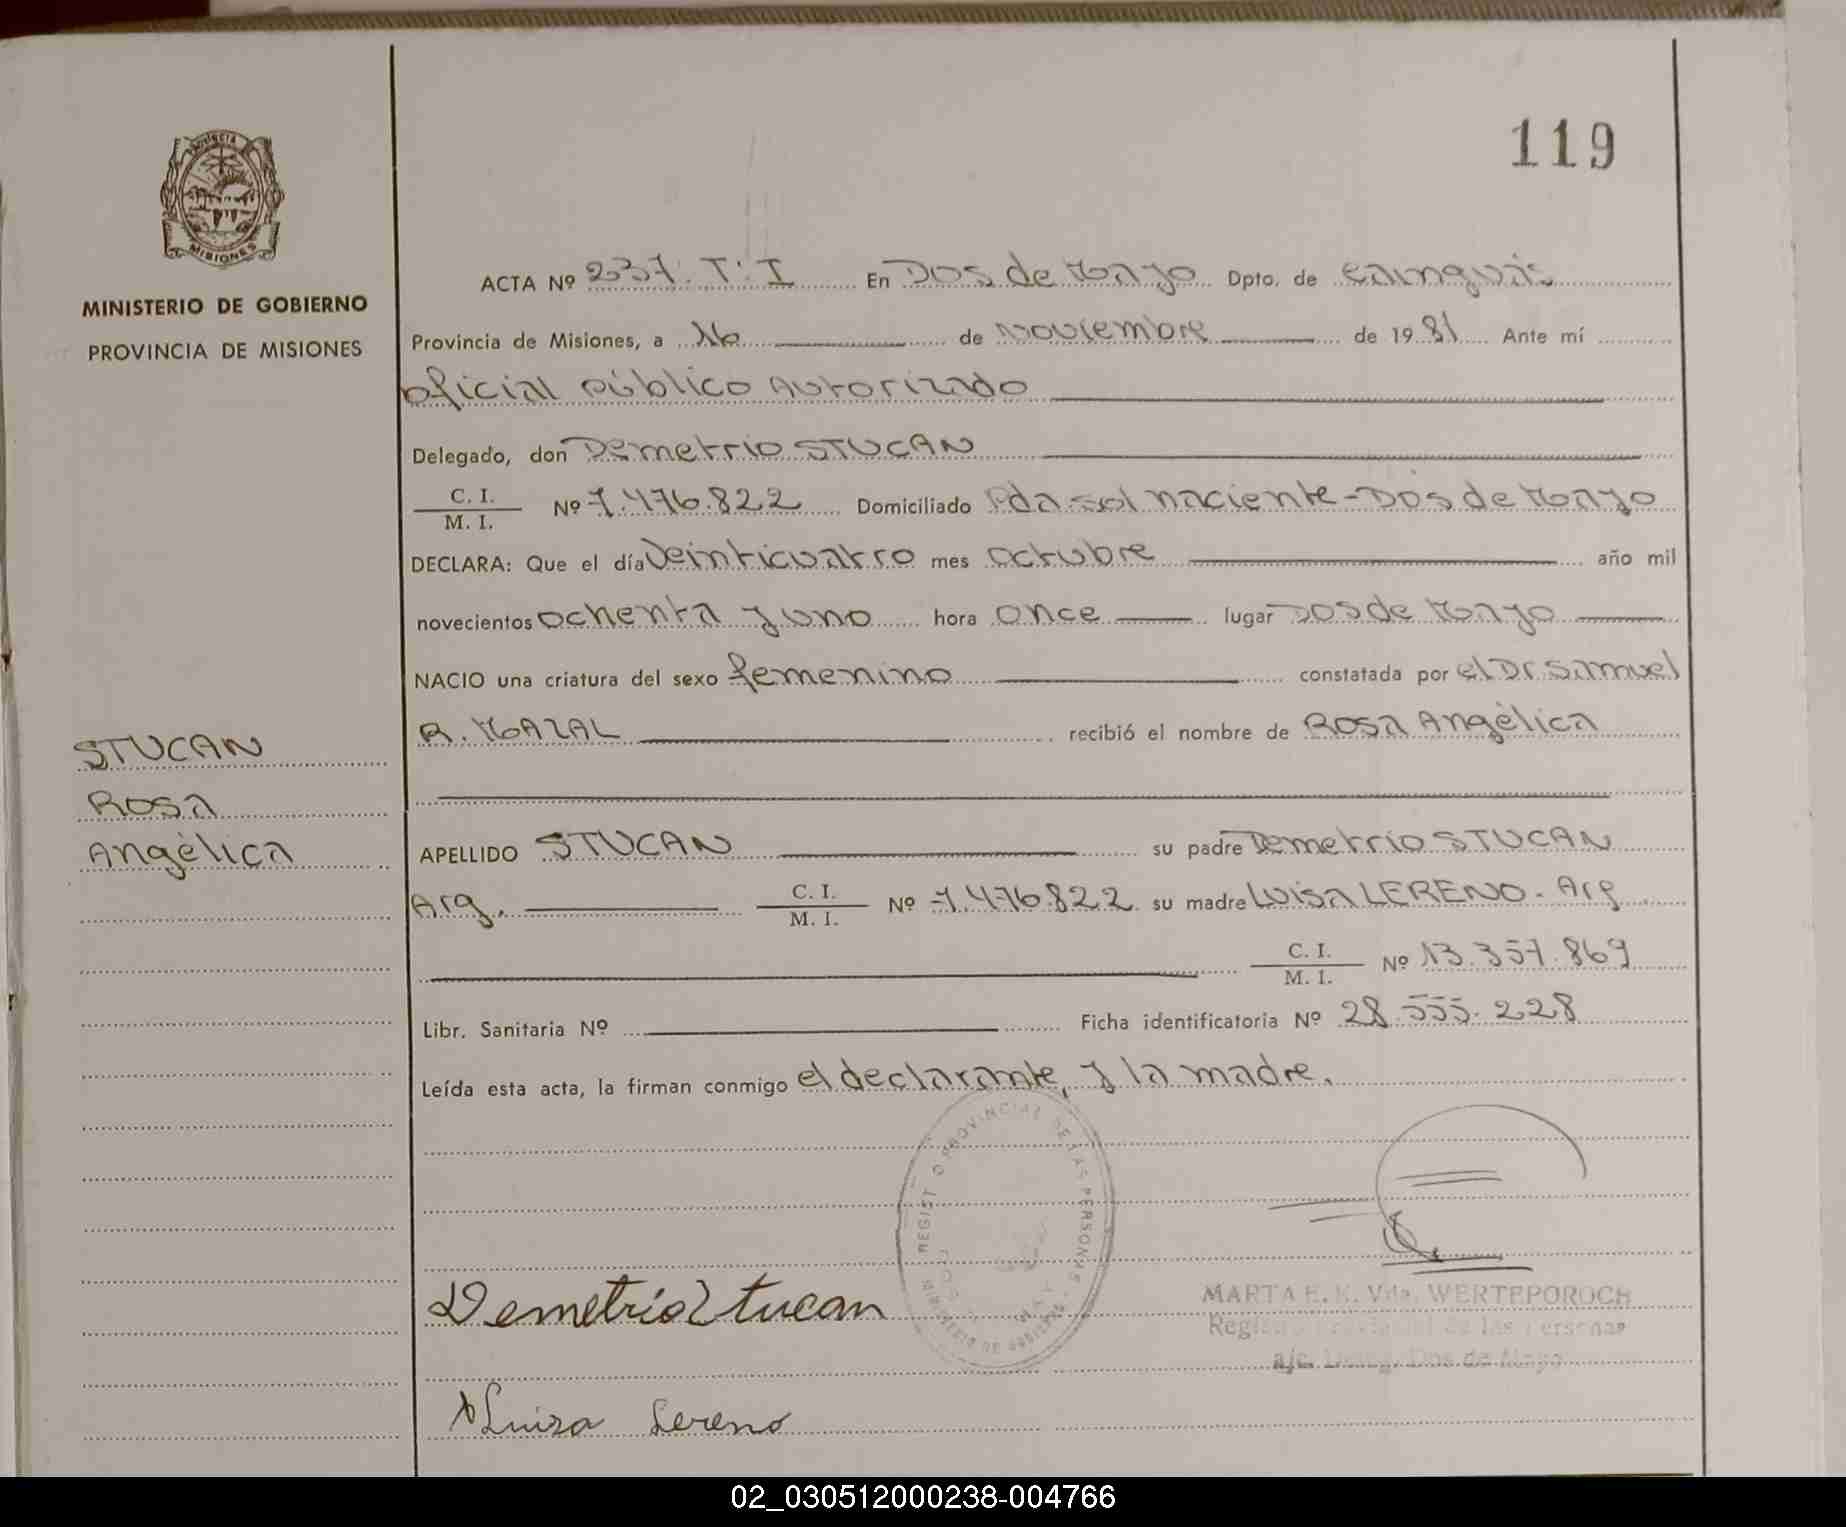 119
PROVINCIA
MISIONES
MINISTERIO DE GOBIERNO
PROVINCIA DE MISIONES
ACTA Nº 237. T: I En Dos de Mayo Dpto. de Cainguás
Provincia de Misiones, a 16 de noviembre de 1981 Ante mí
oficial público Autorizado
Delegado, don Demetrio STUCAN
C. I.
M. I. Nº 7.476.822 Domiciliado Pda. sol naciente - Dos de Mayo
DECLARA: Que el día Veinticuatro mes octubre año mil
novecientos ochenta y uno hora once lugar Dos de Mayo
NACIO una criatura del sexo femenino constatada por el Dr. Samuel
R. MAZAL recibió el nombre de Rosa Angélica
STUCAN
Rosa
Angélica
APELLIDO STUCAN su padre Demetrio STUCAN
Arg. C. I. M. I. Nº 7.476822 su madre LUISA LERENO - Arg.
C. I. M. I. Nº 13.357.869
Libr. Sanitaria Nº Ficha identificatoria Nº 28.555.228
Leída esta acta, la firman conmigo el declarante, y la madre.
REGISTRO PROVINCIAL DE LAS PERSONAS
MINISTERIO DE GOBIERNO
Demetrio Stucan
MARTA E. K. Vda. WERTEPOROCH
Registro Provincial de las Personas
a/c. Deleg. Dos de Mayo
Luisa Lereno
02_030512000238-004766